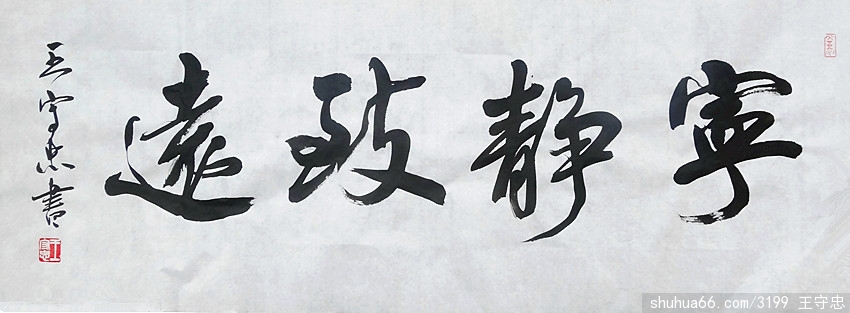 寧静致遠
王守忠書
shuhua66.com/3199 王守忠